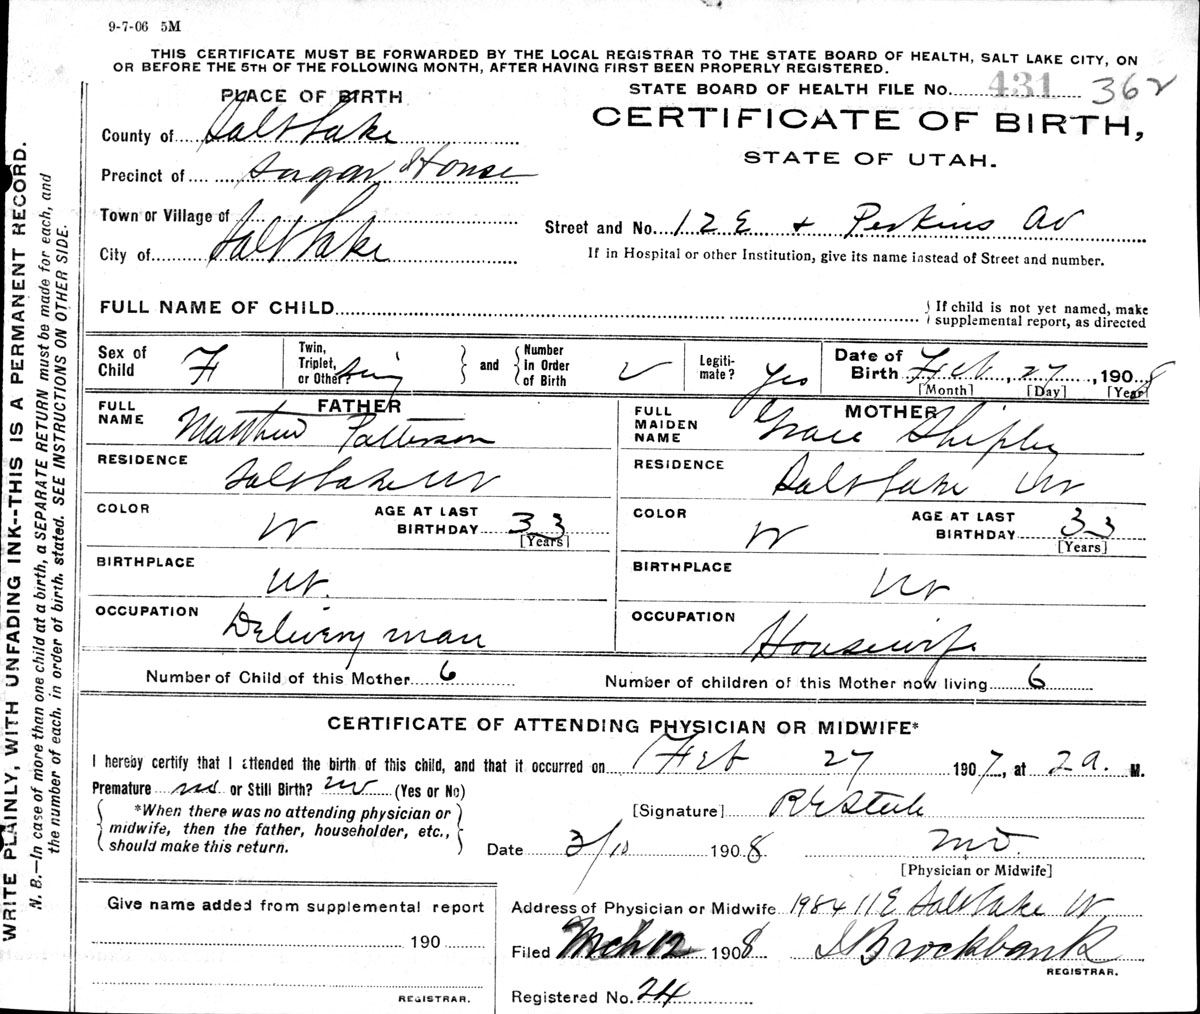 9-7-06 5M
THIS CERTIFICATE MUST BE FORWARDED BY THE LOCAL REGISTRAR TO THE STATE BOARD OF HEALTH, SALT LAKE CITY, ON
OR BEFORE THE 5TH OF THE FOLLOWING MONTH, AFTER HAVING FIRST BEEN PROPERLY REGISTERED.
STATE BOARD OF HEALTH FILE No. 431 362
PLACE OF BIRTH
CERTIFICATE OF BIRTH,
STATE OF UTAH.
County of Salt Lake
Precinct of Sugar House
Town or Village of
City of Salt Lake
Street and No. 12 E + Perkins Av
If in Hospital or other Institution, give its name instead of Street and number.
FULL NAME OF CHILD
If child is not yet named, make
supplemental report, as directed
Sex of Child F
Twin, Triplet, or Other?
and
Number In Order of Birth
Legiti-mate? Yes
Date of Birth Feb 27, 1908
[Month] [Day] [Year]
FATHER
FULL NAME Matthew Patterson
RESIDENCE Salt Lake Ut
COLOR W
AGE AT LAST BIRTHDAY 33
[Years]
BIRTHPLACE Ut.
OCCUPATION Delivery man
MOTHER
FULL MAIDEN NAME Grace Shipley
RESIDENCE Salt Lake Ut
COLOR W
AGE AT LAST BIRTHDAY 33
[Years]
BIRTHPLACE Ut
OCCUPATION Housewife
Number of Child of this Mother 6
Number of children of this Mother now living 6
CERTIFICATE OF ATTENDING PHYSICIAN OR MIDWIFE*
I hereby certify that I attended the birth of this child, and that it occurred on Feb 27 1907, at 2 a. M.
Premature no or Still Birth? no (Yes or No)
*When there was no attending physician or
midwife, then the father, householder, etc.,
should make this return.
[Signature] R E Steele
Date 3/10 1908 MD.
[Physician or Midwife]
Give name added from supplemental report
190
REGISTRAR.
Address of Physician or Midwife 1984 11 E Salt Lake Ut
Filed Mch 12 1908 Brockbank
REGISTRAR.
Registered No. 24
WRITE PLAINLY, WITH UNFADING INK--THIS IS A PERMANENT RECORD.
N. B.—In case of more than one child at a birth, a SEPARATE RETURN must be made for each, and
the number of each, in order of birth, stated. SEE INSTRUCTIONS ON OTHER SIDE.